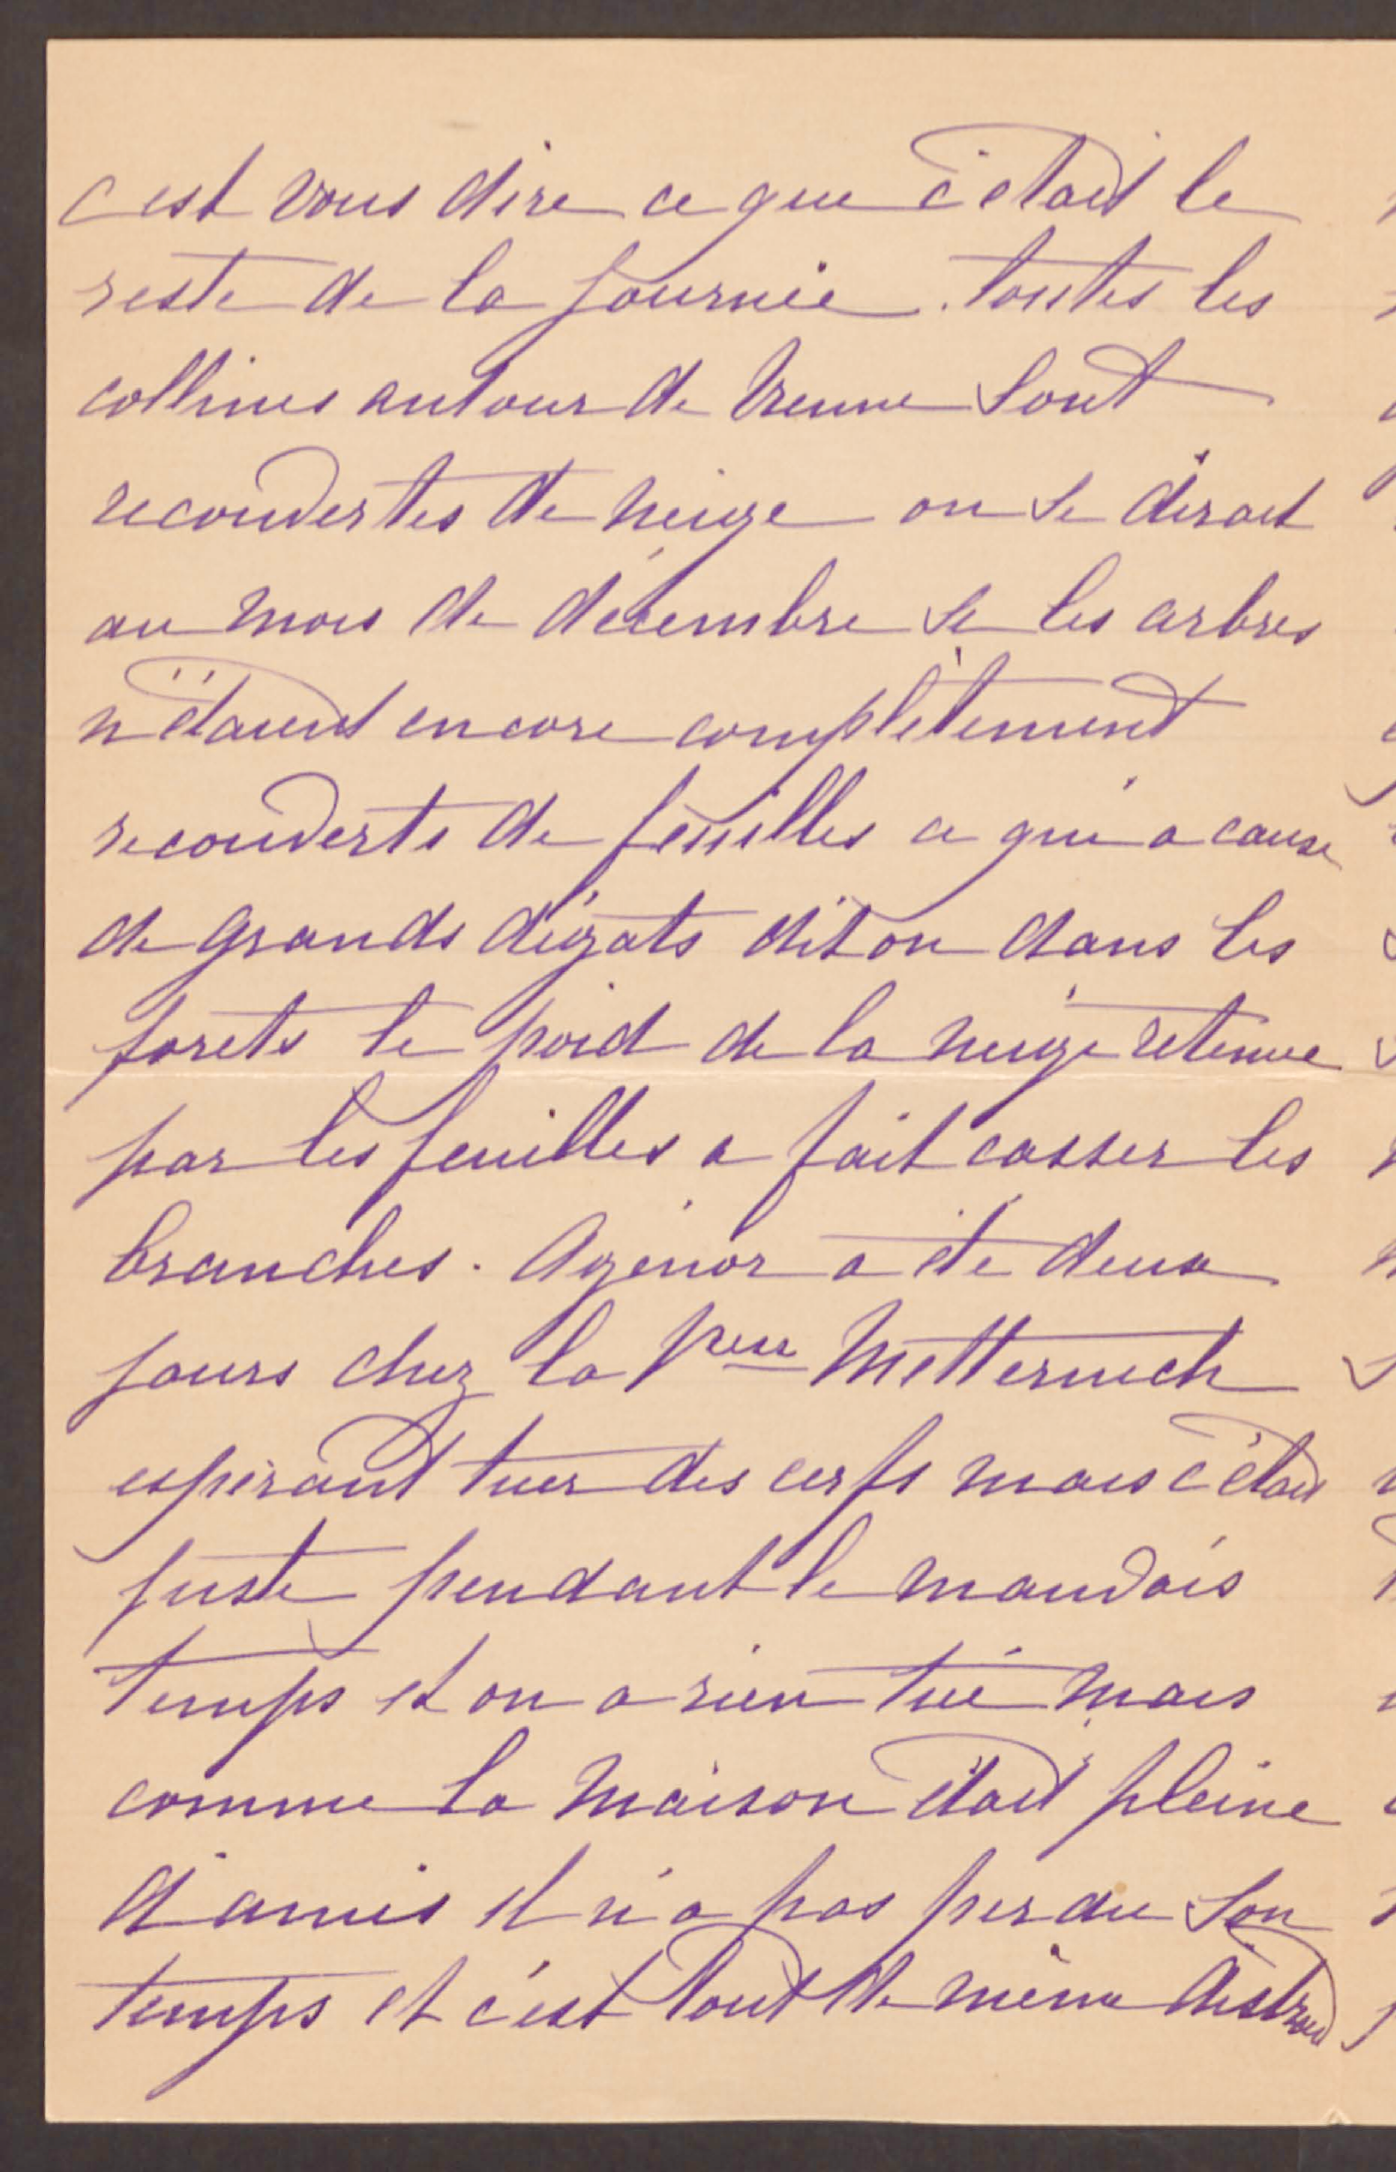 c'est vous dire ce que c'était le
reste de la journée. toutes les
collines autour de Vienne sont
recouvertes de neige on se dirait
au mois de décembre si les arbres
n'étaient encore complètement
recouverts de feuilles ce qui a causé
de grands dégats dit on dans les
forets le poid de la neige retenue
par les feuilles a fait casser les
branches. Agénor a été deux
jours chez la Pcesse Metternich
espérant tuer des cerfs mais c'était
juste pendant le mauvais
temps et on a rien tué mais
comme la maison était pleine
d'amis il n'a pas perdu son
temps et c'est tout de même distrait